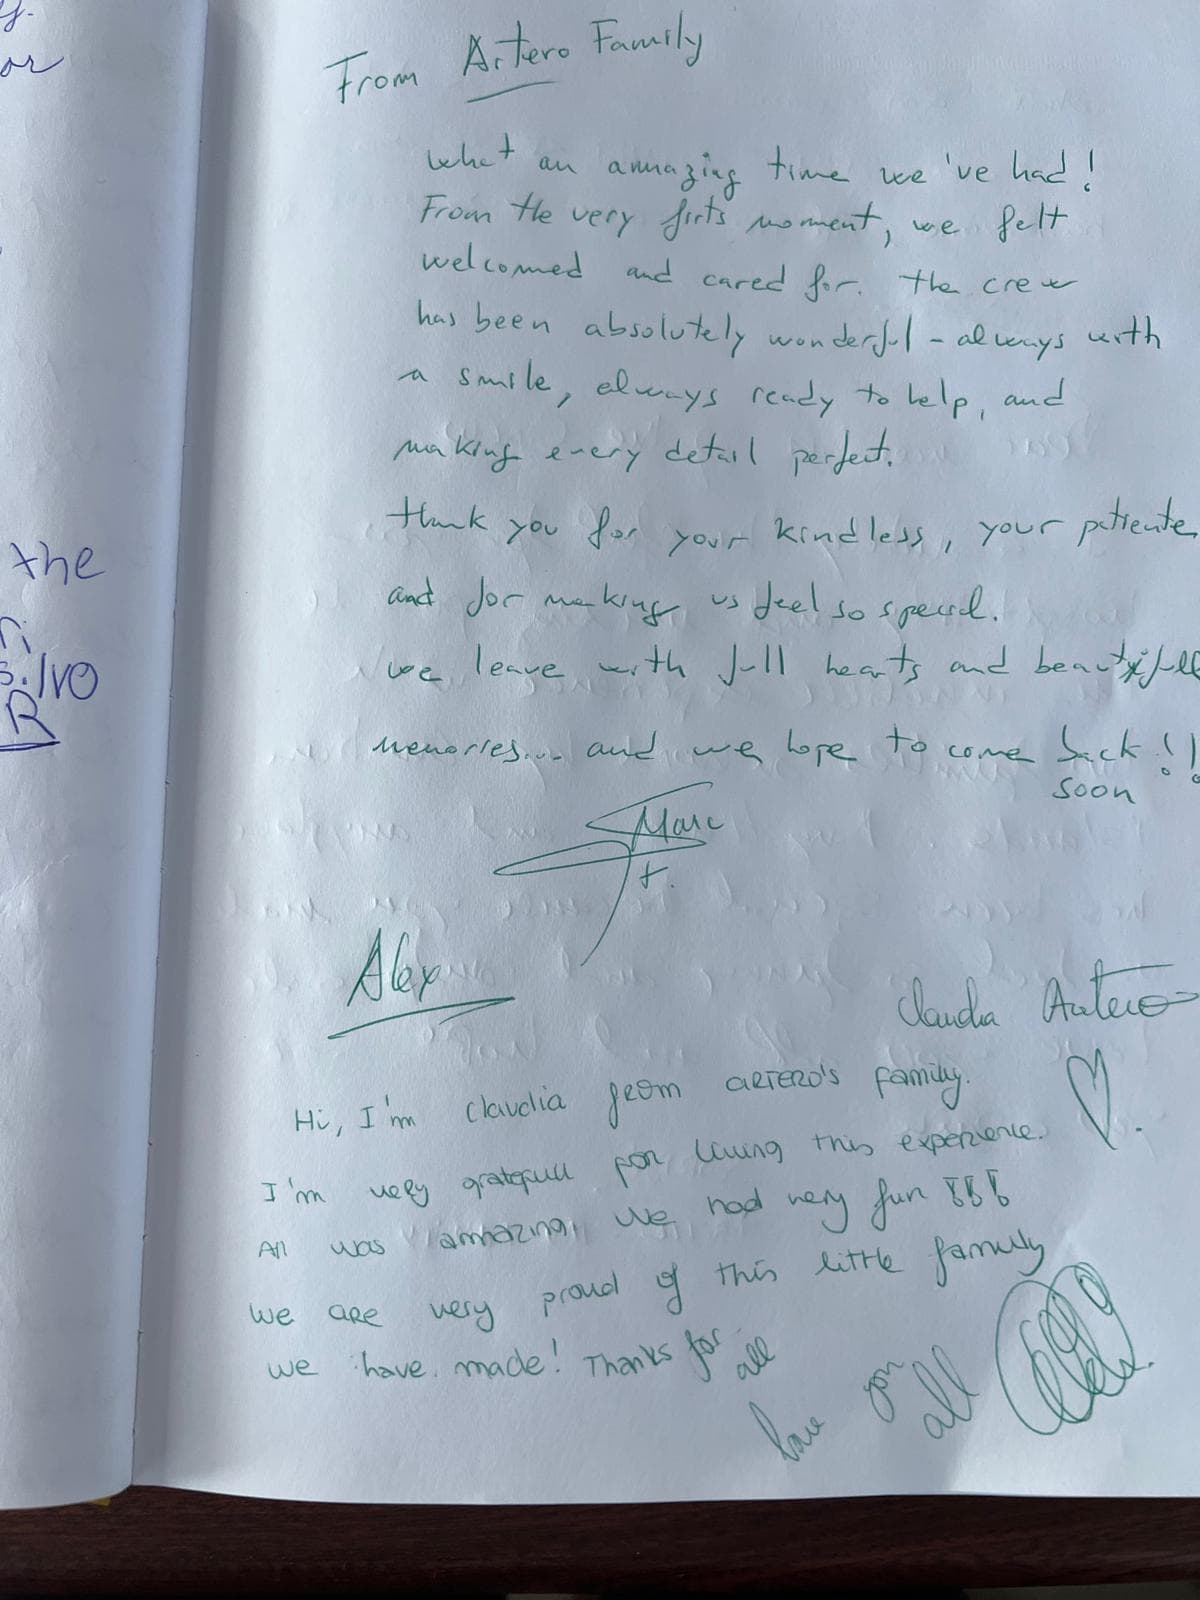 y.
or
the
ri
s. Ivo
R
From Artero Family
What an amazing time we've had!
From the very firts moment, we felt
welcomed and cared for. The crew
has been absolutely wonderful - always with
a smile, always ready to help, and
making every detail perfect.
Thank you for your kindless, your patiente
and for making us feel so special.
We leave with full hearts and beautifull
memories... and we hope to come back!!
soon
Marc
t.
Alex
Claudia Artero
Hi, I'm Claudia from ARTERO's family.
I'm very gratefull for living this experience.
All was amazing, we had very fun !!!
We are very proud of this little family
we have made! Thanks for all
love you all